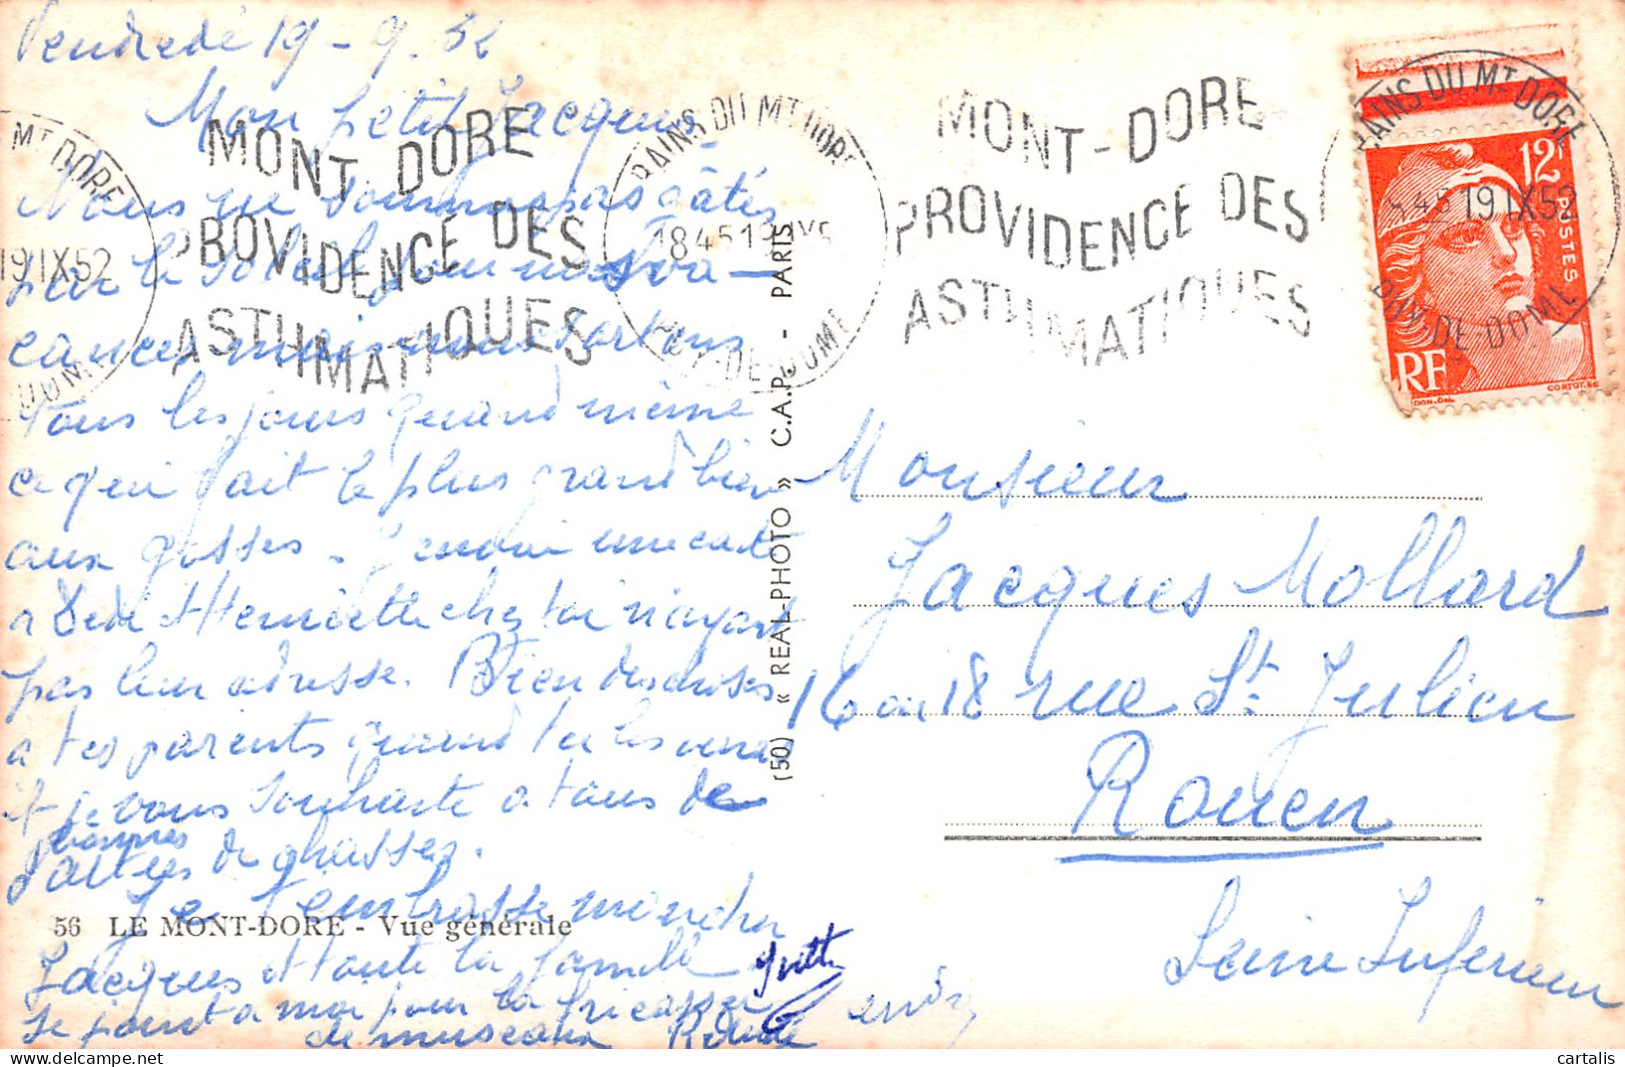 Vendredi 19-9.52
Mon petit Jacques
Nous ne sommes pas gâtés
par le soleil pour nos va-
cances mais nous sortons
tous les jours quand même
ce qui fait le plus grand bien
aux gosses - J'envoie une carte
à Dédé et Henriette chez toi n'ayant
pas leur adresse. Bien des choses
à tes parents quand tu les verras
et je vous souhaite à tous de
bonnes
parties de chasses.
Je t'embrasse mon cher
Jacques et toute la famille
Yvette
se joint à moi pour la fricassée
de museaux
MONT-DORE
PROVIDENCE DES
ASTHMATIQUES
MT DORE
19 IX 52
DOME
BAINS DU MT DORE
18 45 19 IX 5
PUY-DE-DOME
MONT-DORE
PROVIDENCE DES
ASTHMATIQUES
BAINS DU MT DORE
45 19 IX 52
PUY-DE-DOME
12F
POSTES
RF
CORTOT.SC
56 LE MONT-DORE - Vue générale
(50) « REAL-PHOTO » C.A.P. - PARIS
Monsieur
Jacques Mollard
16 ou 18 rue St. Julien
Rouen
Seine Inférieure
cartalis